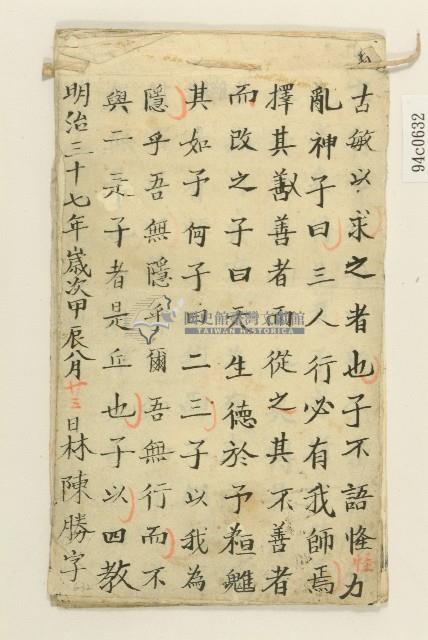 古敏以求之者也子不語怪力
怪
亂神子曰三人行必有我師焉
擇其善善者而從之其不善者
而改之子曰天生德於予桓魋
其如予何子曰二三子以我為
隱乎吾無隱乎爾吾無行而不
與二三子者是丘也子以四教
明治三十七年歲次甲辰八月廿三日林陳勝字
94c0632
國史館臺灣文獻館
TAIWAN HISTORICA